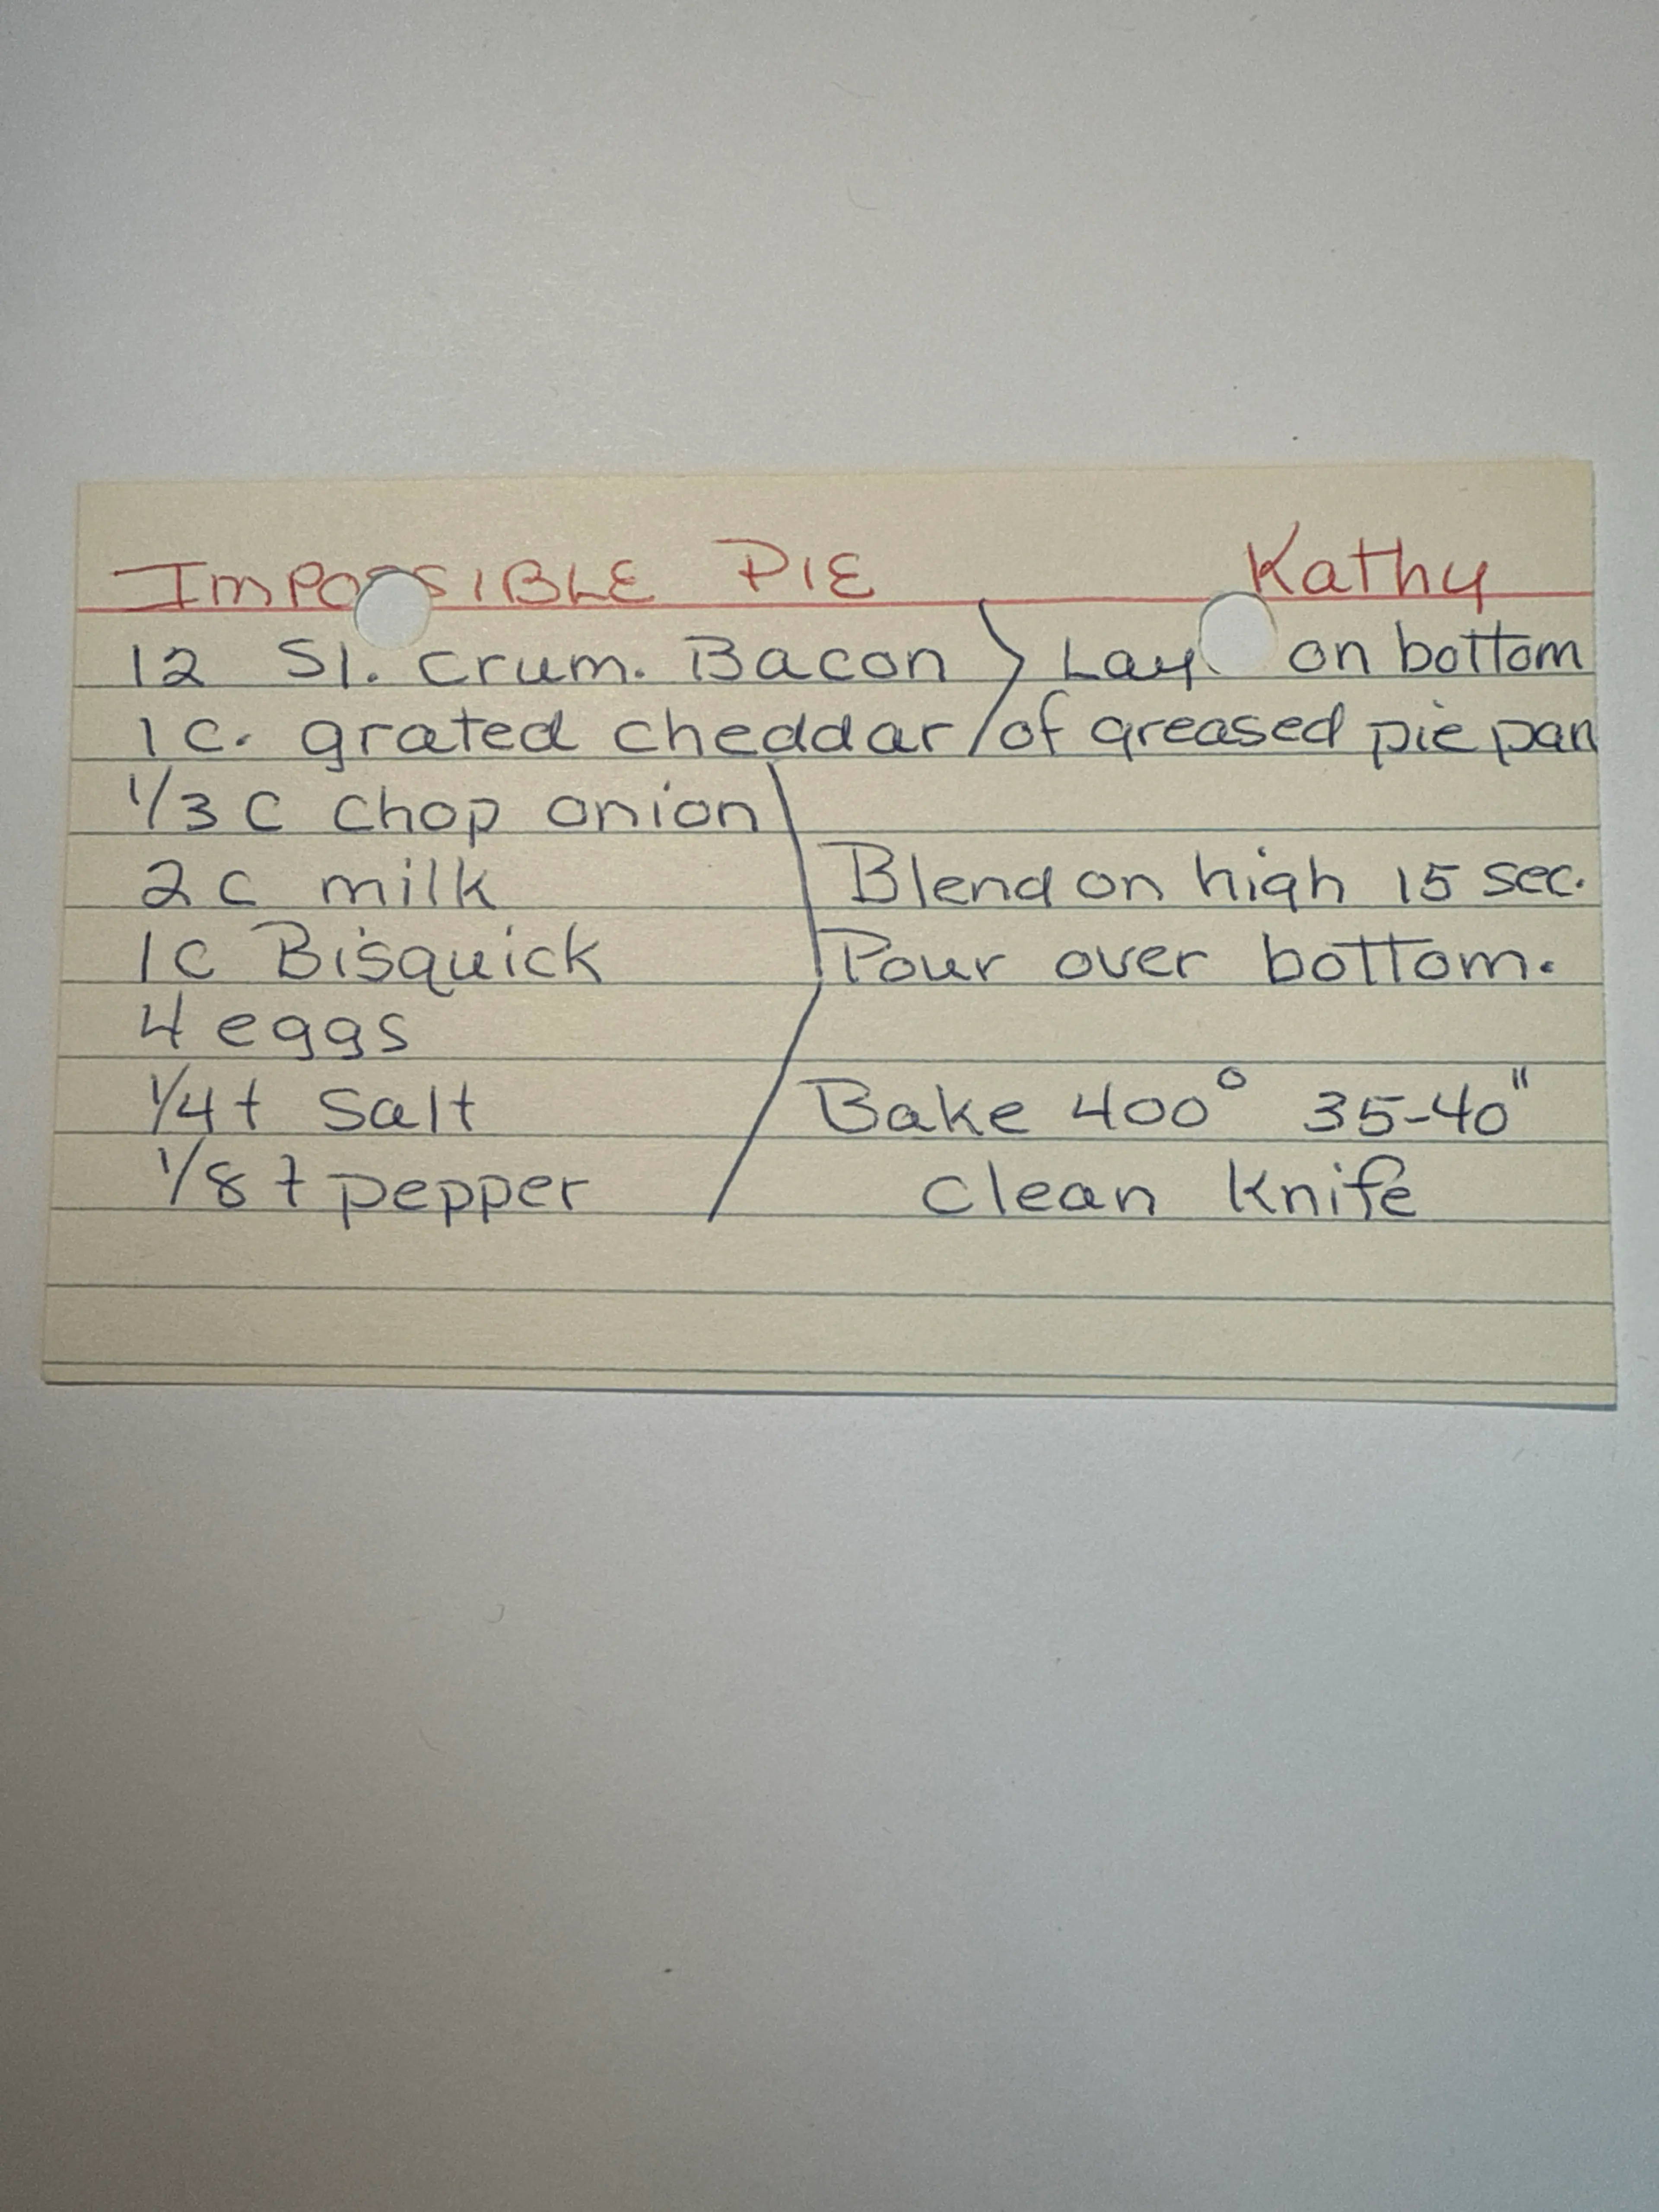 IMPOSSIBLE PIE Kathy
12 Sl. crum. Bacon Lay on bottom
1 c. grated cheddar of greased pie pan
1/3 c chop onion
2 c milk Blend on high 15 sec.
1 c Bisquick Pour over bottom.
4 eggs
1/4 t salt Bake 400° 35-40"
1/8 t pepper clean knife